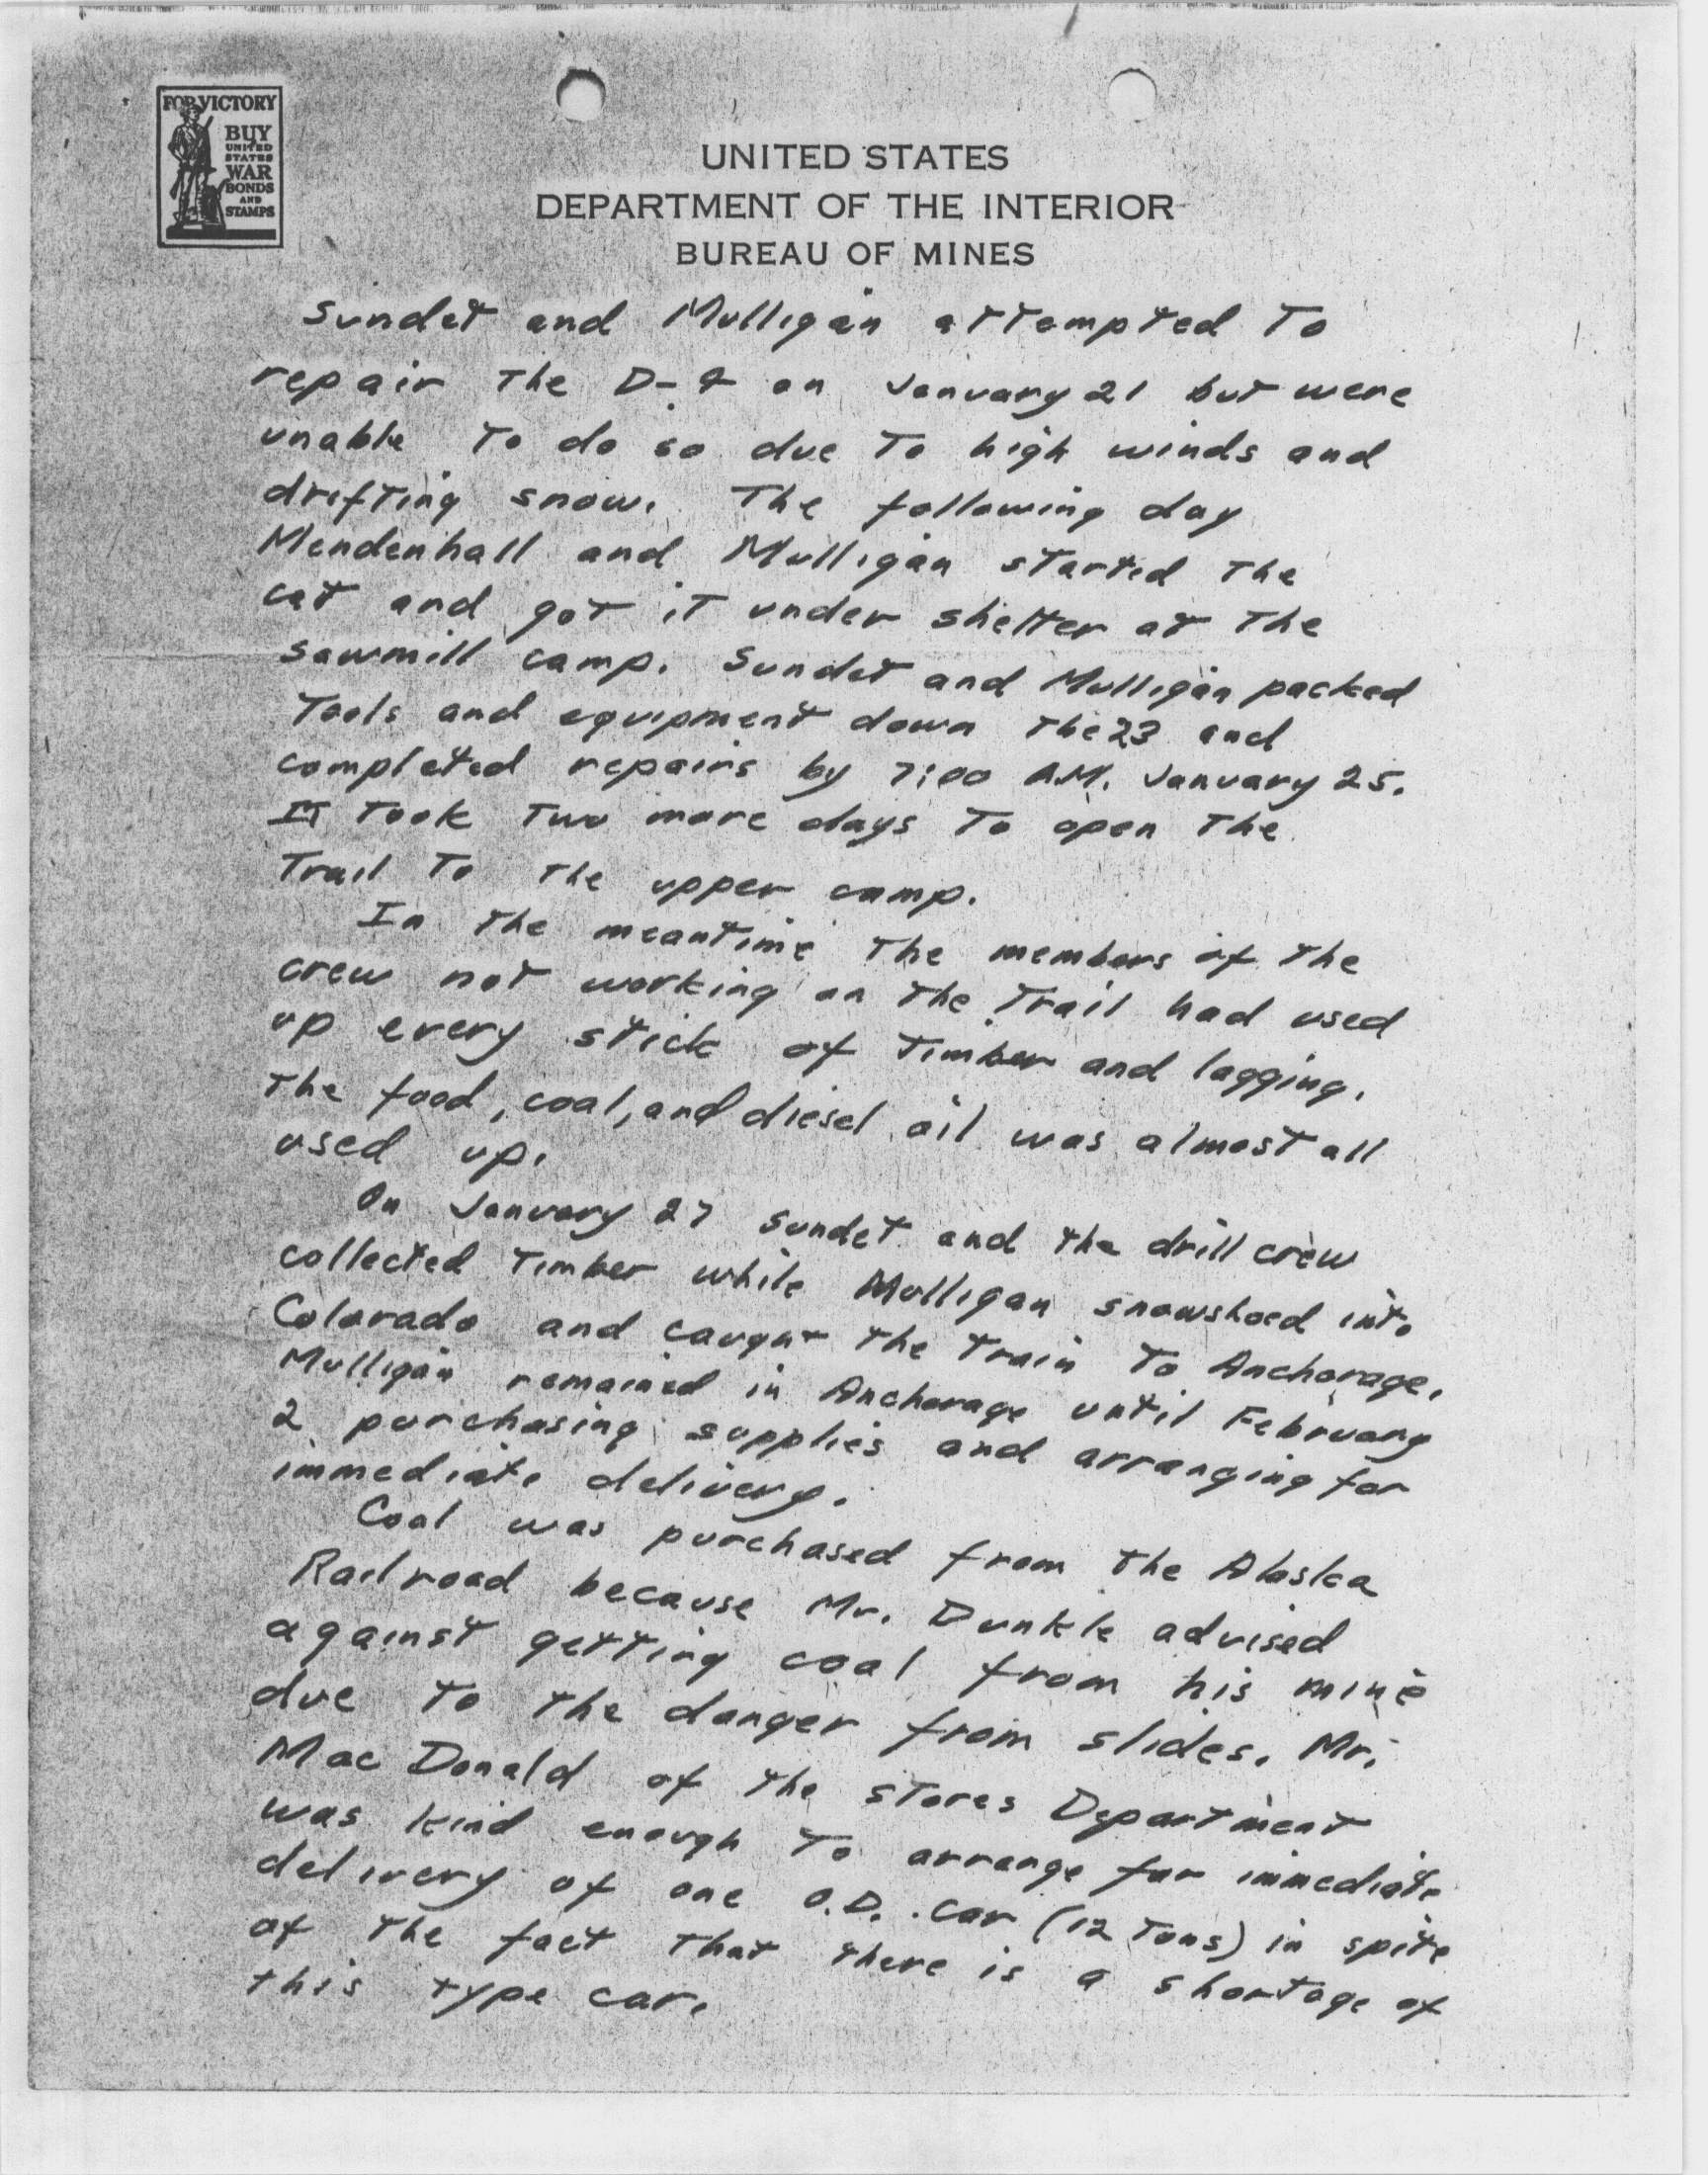 FOR VICTORY
BUY
UNITED
STATES
WAR
BONDS
AND
STAMPS
UNITED STATES
DEPARTMENT OF THE INTERIOR
BUREAU OF MINES
Sundet and Mulligan attempted to
repair the on January 21 but were
unable to do so due to high winds and
drifting snow. The following day
Mendenhall and Mulligan started the
cat and got it under shelter at the
sawmill camp. Sundet and Mulligan packed
tools and equipment down the 23 and
completed repairs by 7:00 A.M. January 25.
It took two more days to open the
trail to the upper camp.
In the meantime the members of the
crew not working on the trail had used
up every stick of timber and lagging.
The food, coal, and diesel oil was almost all
used up.
On January 27 Sundet and the drill crew
collected timber while Mulligan snowshoed into
Colorado and caught the train to Anchorage.
Mulligan remained in Anchorage until February
2 purchasing supplies and arranging for
immediate delivery.
Coal was purchased from the Alaska
Railroad because Mr. Dunkle advised
against getting coal from his mine
due to the danger from slides. Mr.
MacDonald of the Stores Department
was kind enough to arrange for immediate
delivery of one O.D. car (12 tons) in spite
of the fact that there is a shortage of
this type car.